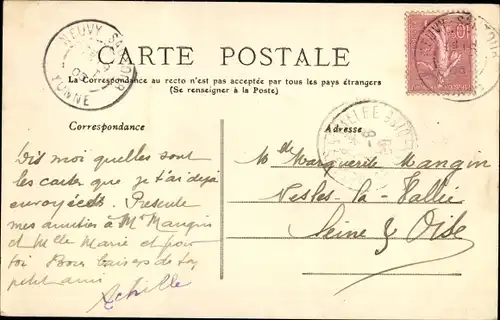 NEUVY-SAUTOUR
YONNE
CARTE POSTALE
La Correspondance au recto n'est pas acceptée par tous les pays étrangers
(Se renseigner à la Poste)
Correspondance
Adresse
Dis moi quelles sont
les cartes que je t'ai déjà
envoyées. Présente
mes amitiés à Mr Mangin
et Melle Marie et pour
toi Bons baisers de ton
petit ami
Achille
Melle Marguerite Mangin
Nesles-la-Vallée
Seine & Oise
10